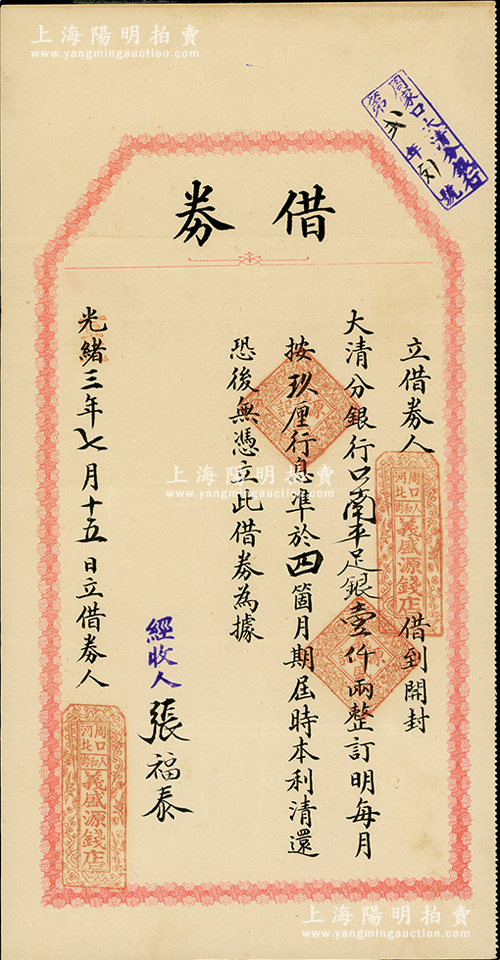 上海陽明拍賣
www.yangmingauction.com
周家口大清分銀行
第 號
借券
立借券人 借到開封
大清分銀行口南平足銀壹仟兩整訂明每月
按玖厘行息準於四箇月期屆時本利清還
恐後無憑立此借券為據
經收人 張福泰
光緒三年七月十五日立借券人
周口
河北
人和街
義盛源錢店
周口
河北
人和街
義盛源錢店
上海陽明拍賣
www.yangmingauction.com
上海陽明拍賣
www.yangmingauction.com